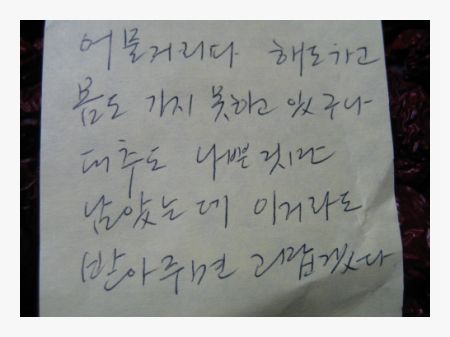 어물거리다 해도 가고
몸도 가지 못하고 있구나
대추도 나쁜 것만
남았는데 이거라도
받아주면 고맙겠다